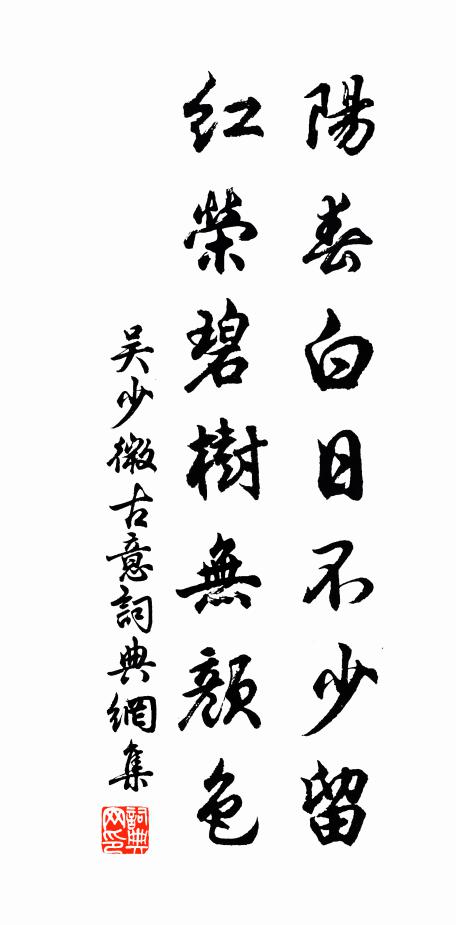 陽春白日不少留
紅榮碧樹無顏色
吴少微古意詞典網集
詞典网印